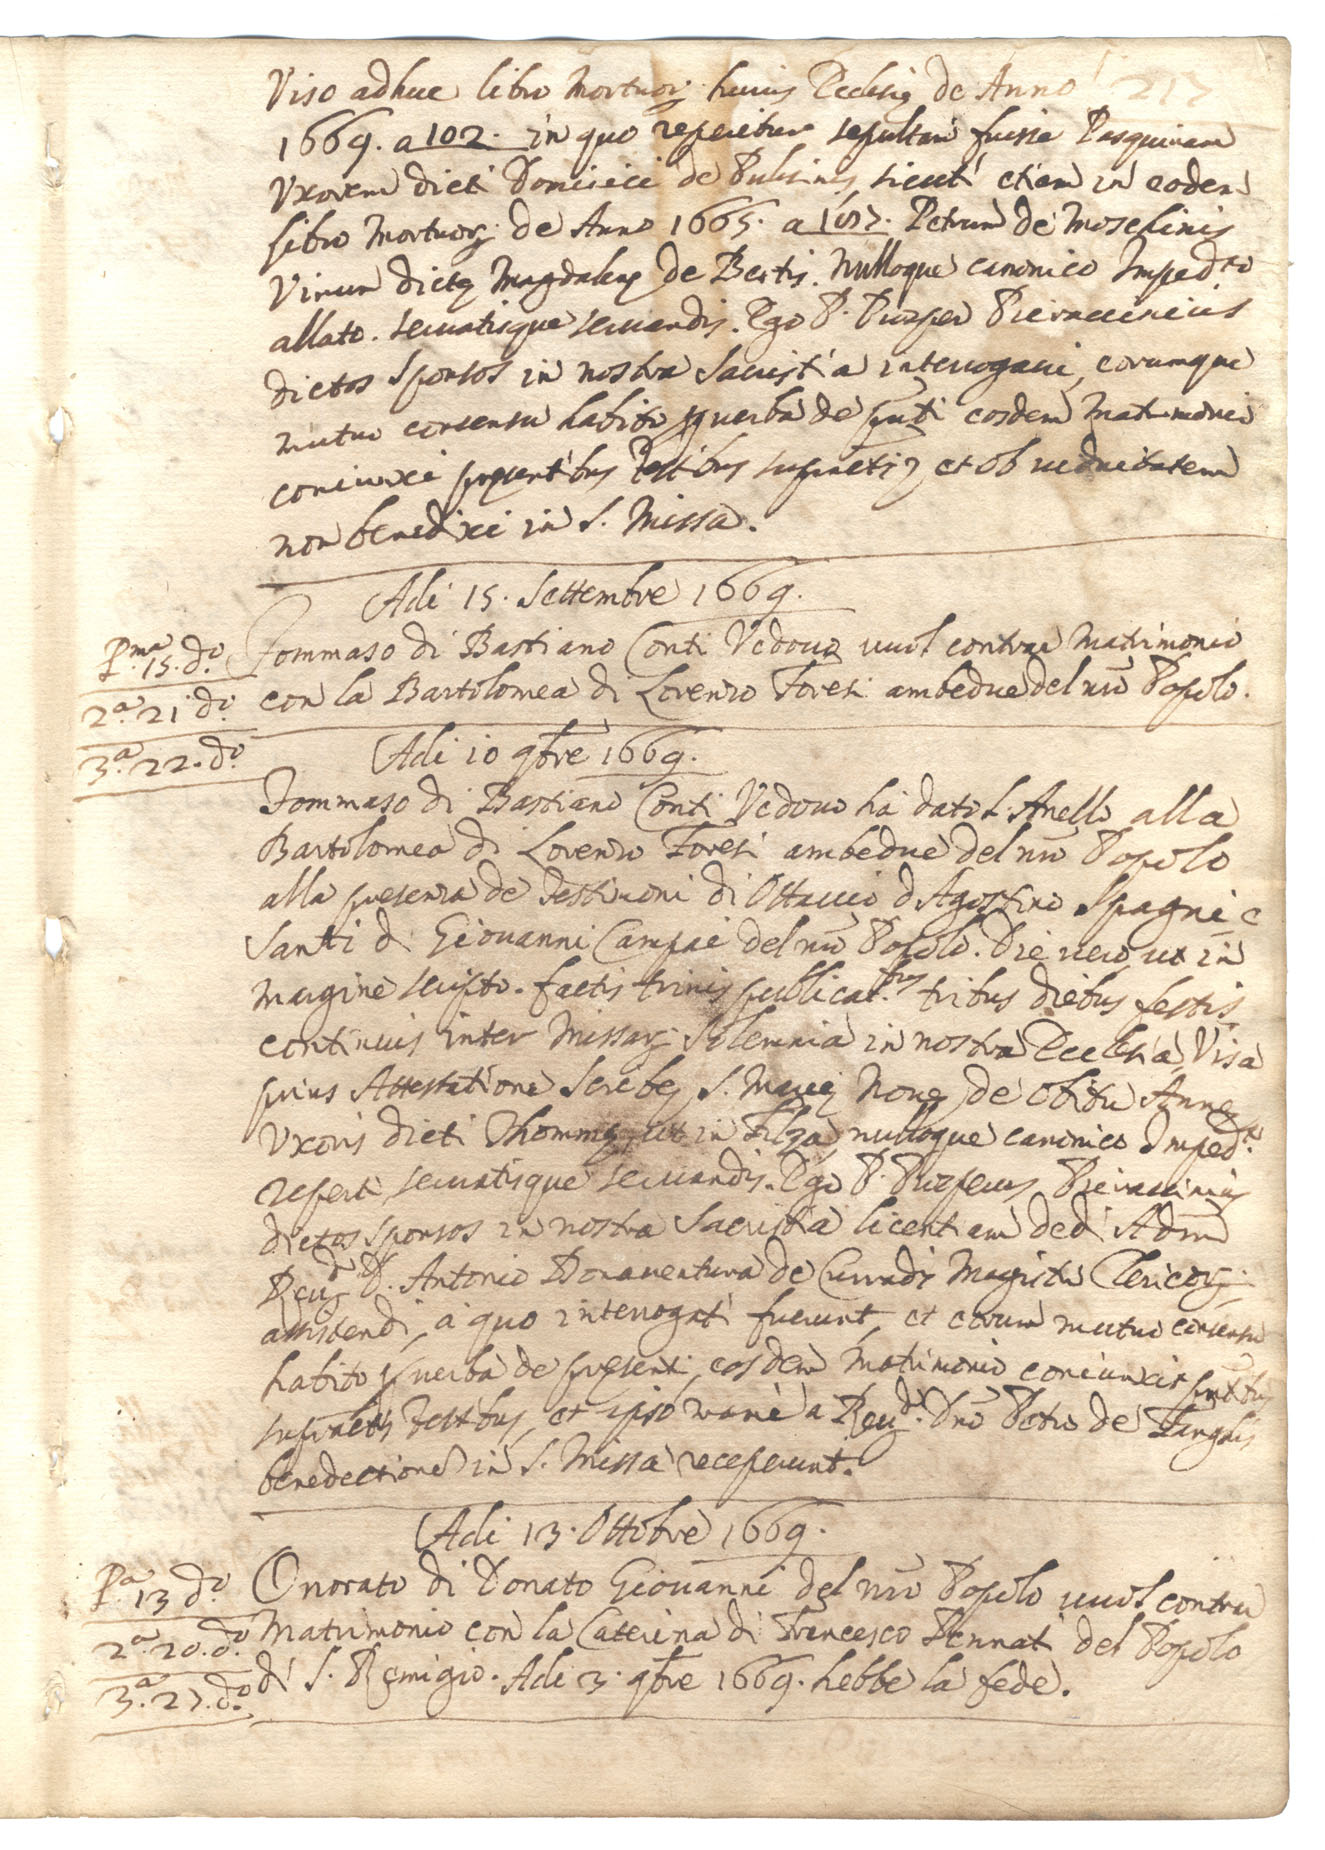 Viso adhuc libro Mortuorz huius Ecclesię de Anno 217
1669. a 102. in quo reperitur sepultam fuisse Pasquinam
Vxorem dicti Dominici de Pulisinis, sicuti etiam in eodem
libro Mortuorz de Anno 1665. a Petrum de Moschinis
Virum dictę Magdalenę de Bertis. Nulloque canonico Imped.to
allato. seruatisque seruandis. Ego P. Prosper Pieraccinius
dictos sponsos in nostra Sacristia interrogaui, eorumque
mutuo consensu habito p uerba de pnti eosdem Matrimonio
coniunxi pręsentibus Testibus supradictis et ob uiduitatem
non benedixi in S. Missa.
Adi 15. Settembre 1669.
P.ma 15. d.o Tommaso di Bastiano Conti Vedouo uuol contrar Matrimonio
2.a 21 d.o con la Bartolomea di Lorenzo Foresi ambedue del nro Popolo.
3.a 22. d.o Adi 10 9bre 1669.
Tommaso di Bastiano Conti Vedouo ha dato l'Anello alla
Bartolomea di Lorenzo Foresi ambedue del nro Popolo
alla presenza de Testimoni di Ottauio d'Agostino Spagni e
Santi di Giouanni Campai del nro Popolo. Die uero ut in
margine scripto. factis trinis publicat.bus tribus diebus festis
continuis inter Missarz Solemnia in nostra Ecclesia, Visa
prius Attestatione Scribę S. Marię Nouę de obitu Annę
Vxoris dicti Thommę, ut in Filza, nulloque canonico Imped.to
reperto, seruatisque seruandis. Ego P. Prosperus Pieraccinius
dictos sponsos in nostra Sacristia licentiam dedi Adm
Reu.do D. Antonio Bonauentura de Curradis Magistro Clericorz
assistendi, a quo interrogati fuerunt, et eorum mutuo consensu
habito p uerba de pręsenti, eosdem Matrimonio coniunxit pntibus
supradictis Testibus, et ipso mane a Reu.do Dno Petro de
benedectione in S. Missa receperunt.
Adi 13. Ottobre 1669.
P.a 13 d.o Onorato di Donato Giouanni del nro Popolo uuol contrar
2.a 20. d.o Matrimonio con la Caterina di Francesco Pennati del Popolo
3.a 27. d.o di S. Remigio. Adi 3. 9bre 1669. hebbe la fede.